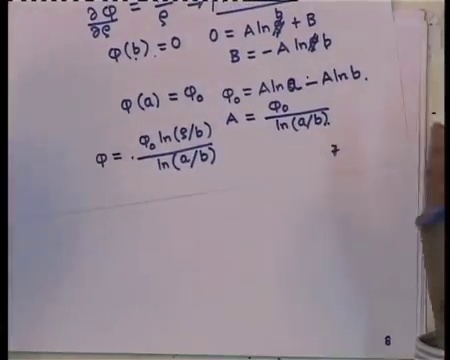 ∂φ/∂ρ = ρ
φ(b) = 0 0 = A ln b + B
B = - A ln b
φ(a) = φ₀ φ₀ = A ln a - A ln b.
A = φ₀ / ln(a/b).
φ = φ₀ ln(ρ/b) / ln(a/b)
7
8